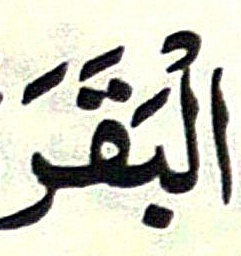 الْبَقَرَ